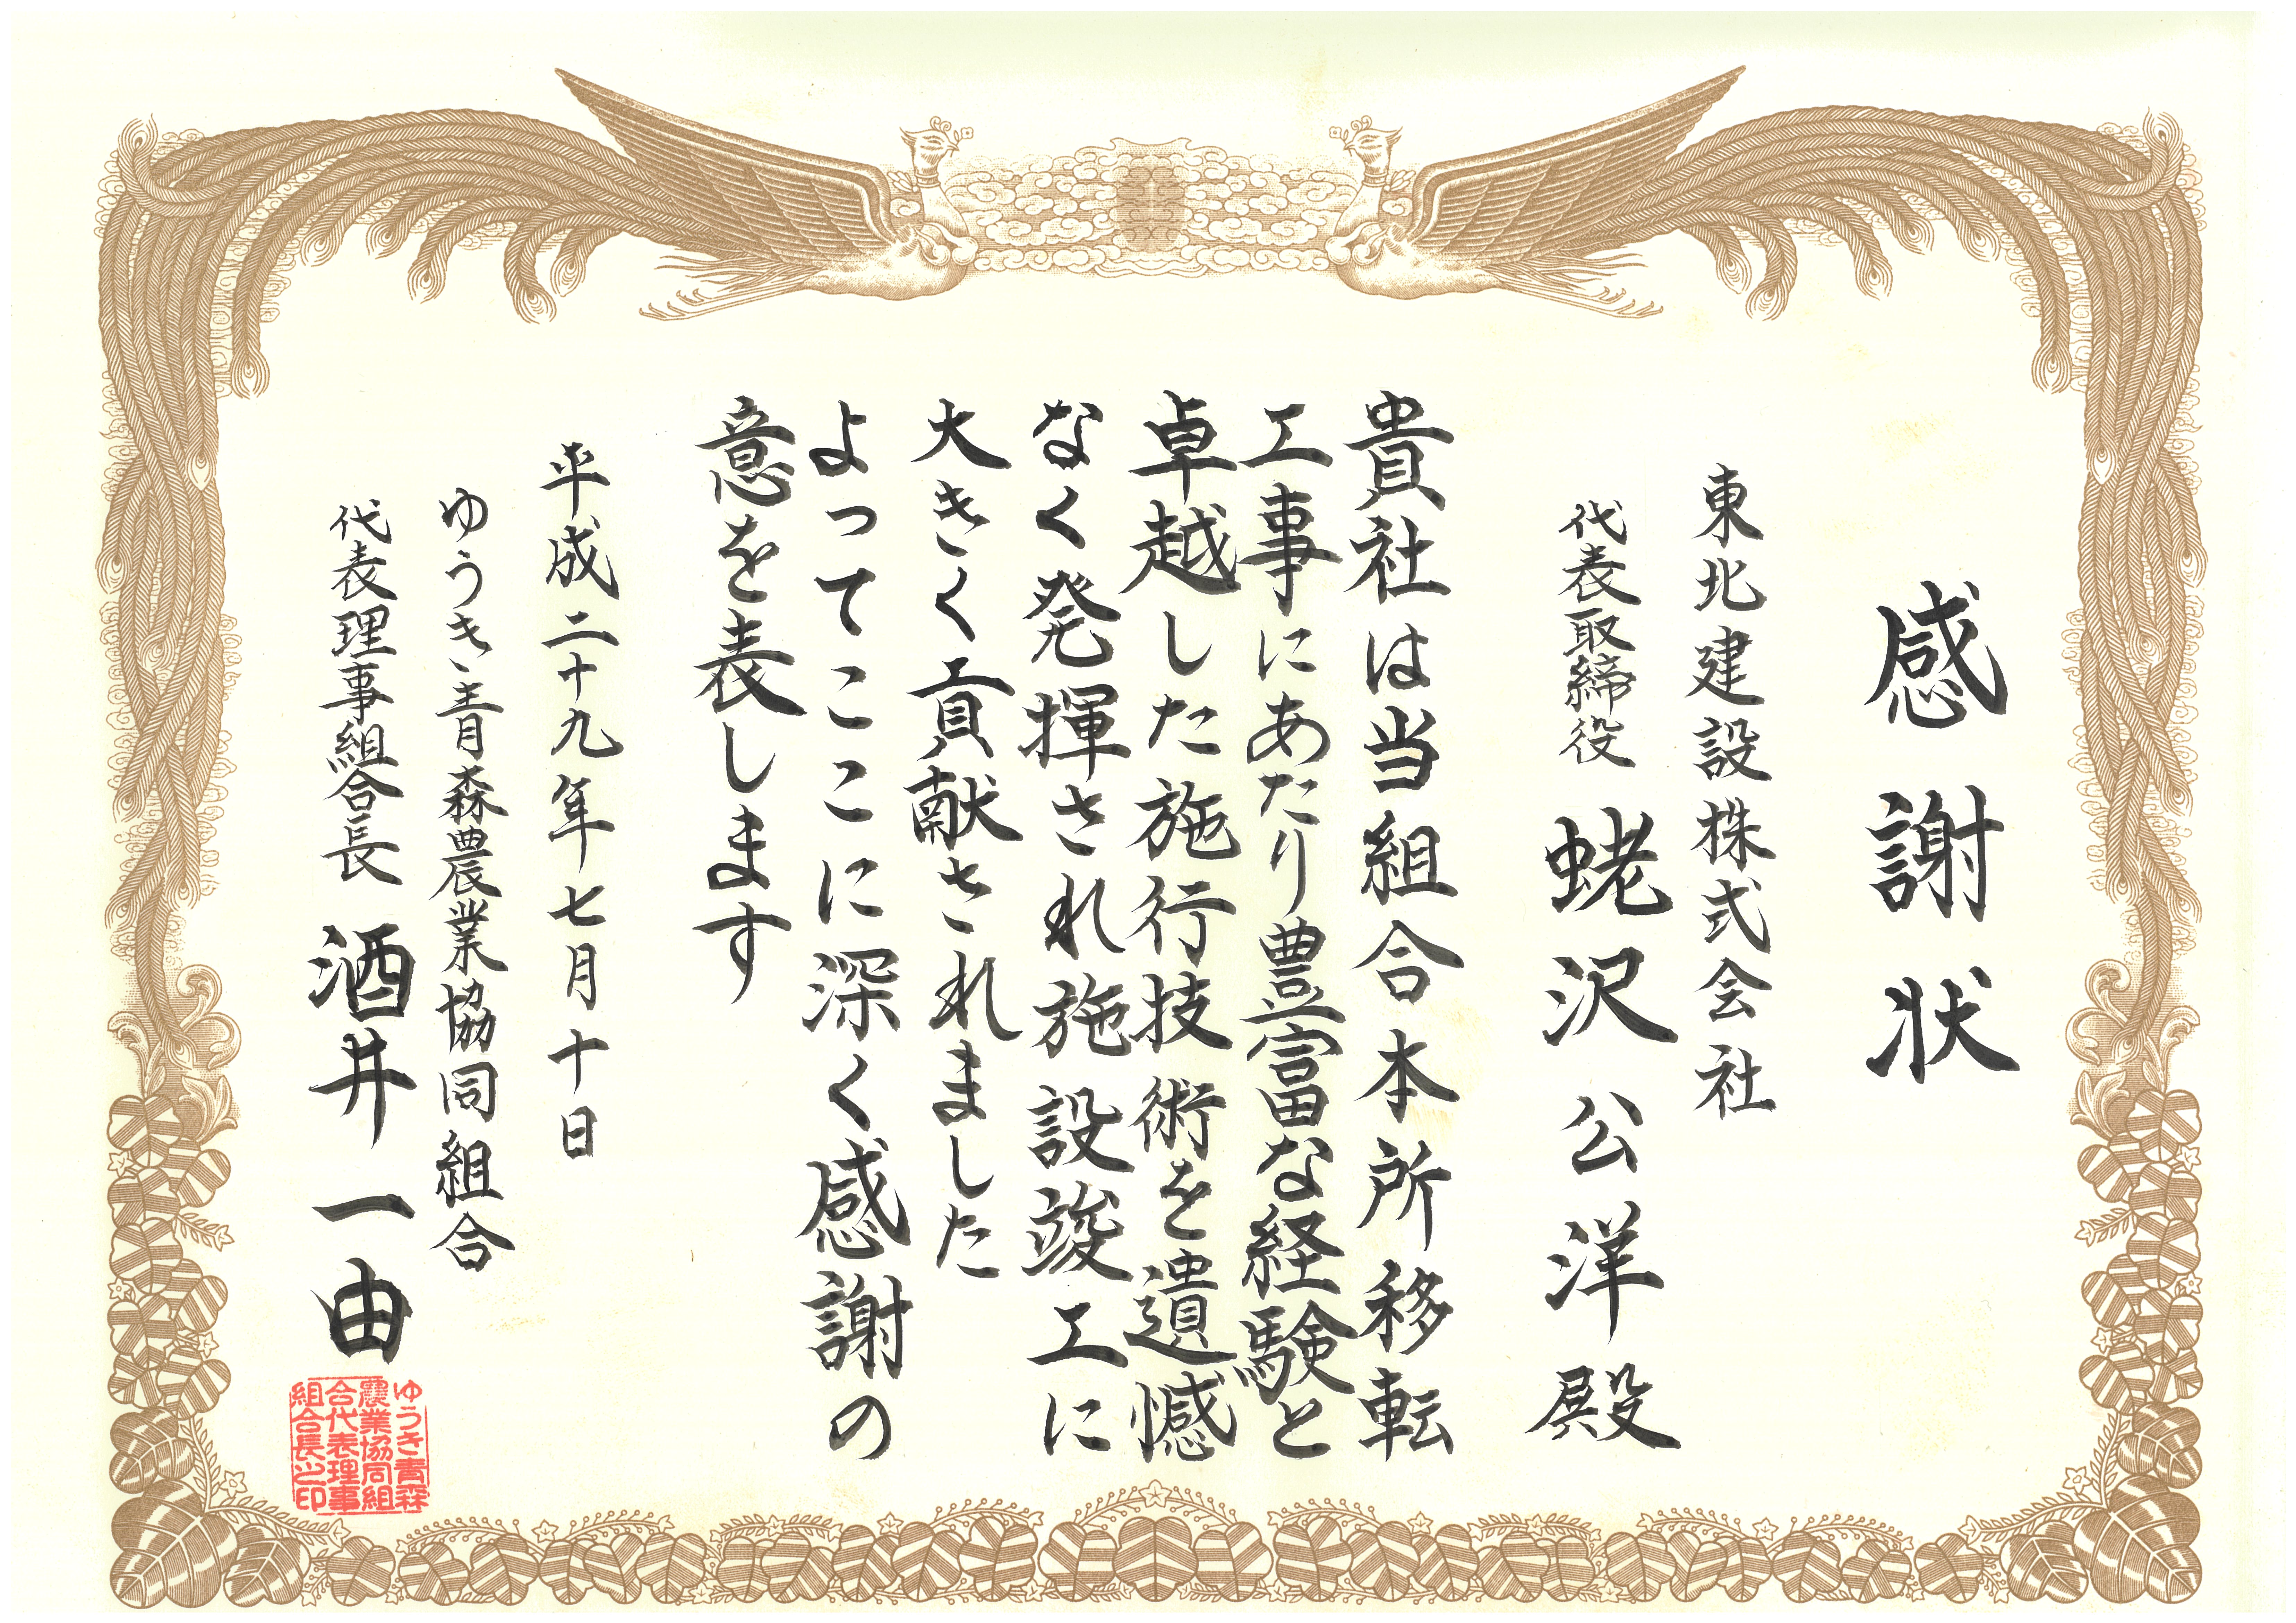 感謝状
東北建設株式会社
代表取締役 蛯沢公洋殿
貴社は当組合本所移転
工事にあたり豊富な経験と
卓越した施行技術を遺憾
なく発揮され施設竣工に
大きく貢献されました
よってここに深く感謝の
意を表します
平成二十九年七月十日
ゆうき青森農業協同組合
代表理事組合長 酒井一由
ゆうき青森
農業協同組
合代表理事
組合長之印